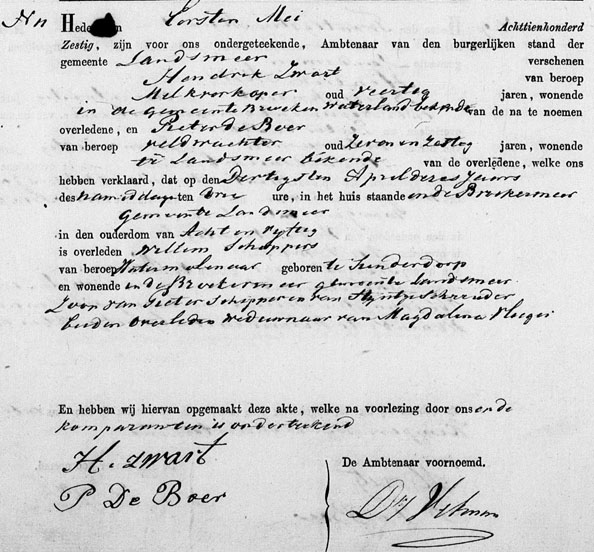 Heden den Eersten Mei Achttienhonderd
Zestig, zijn voor ons ondergeteekende, Ambtenaar van den burgerlijken stand der
gemeente Landsmeer verschenen
Hendrik Zwart van beroep
Melkverkoper oud veertig jaren, wonende
in de gemeente Broek in Waterland bekende van de na te noemen
overledene, en Pieter de Boer
van beroep veldwachter oud Zeven en Zestig jaren, wonende
te Landsmeer bekende van de overledene, welke ons
hebben verklaard, dat op den Dertigsten April dezes Jaars
des namiddags ten Drie ure, in het huis staande in de Broekermeer
gemeente Landsmeer
in den ouderdom van Acht en vijftig
is overleden Willem Schippers
van beroep Watermolenaar geboren te Zunderdorp
en wonende in de Broekermeer gemeente Landsmeer
Zoon van Pieter Schipper en van Schreuder
beiden overleden weduwnaar van Magdalena Ploeger
En hebben wij hiervan opgemaakt deze akte, welke na voorlezing door ons en de
komparanten is onderteekend
H. Zwart
P De Boer
De Ambtenaar voornoemd.